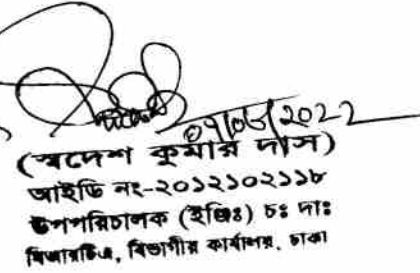 ০৭/০৬/2022
(স্বদেশ কুমার দাস)
আইডি নং-২০১২১০২১১৮
উপপরিচালক (ইঞ্জিঃ) চঃ দাঃ
বিআরটিএ, বিভাগীয় কার্যালয়, ঢাকা